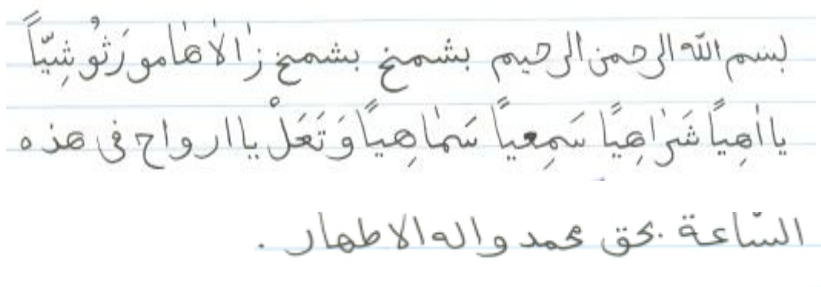 بسم الله الرحمن الرحيم بشمخ بشمخ زٰالاهٰامورَثُوشِيّاً
يااٰهِياًّ شَرٰاهِياًّ سَمِعياً سَمٰاهِياًّ وَتَعَلْ ياارواح فى هذه
السّاعة بحق محمد واله الاطهار .